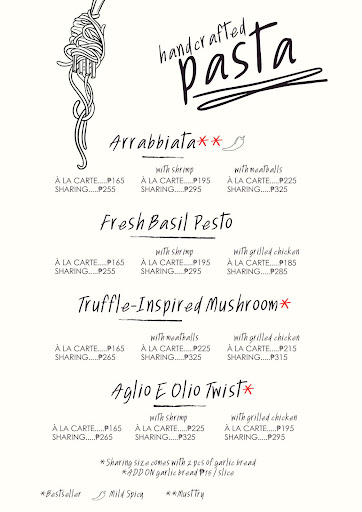 handcrafted
pasta
Arrabbiata**
with shrimp with meatballs
À LA CARTE.....₱165 À LA CARTE.....₱195 À LA CARTE.....₱225
SHARING.....₱255 SHARING.....₱295 SHARING.....₱325
Fresh Basil Pesto
with shrimp with grilled chicken
À LA CARTE.....₱165 À LA CARTE.....₱195 À LA CARTE.....₱185
SHARING.....₱255 SHARING.....₱295 SHARING.....₱285
Truffle-Inspired Mushroom*
with meatballs with grilled chicken
À LA CARTE.....₱165 À LA CARTE.....₱225 À LA CARTE.....₱215
SHARING.....₱265 SHARING.....₱325 SHARING.....₱315
Aglio E Olio Twist*
with shrimp with grilled chicken
À LA CARTE.....₱165 À LA CARTE.....₱225 À LA CARTE.....₱195
SHARING.....₱265 SHARING.....₱325 SHARING.....₱295
*Sharing size comes with 2 pcs of garlic bread
*ADD ON garlic bread ₱15 / slice
*Bestseller Mild Spicy **Must Try